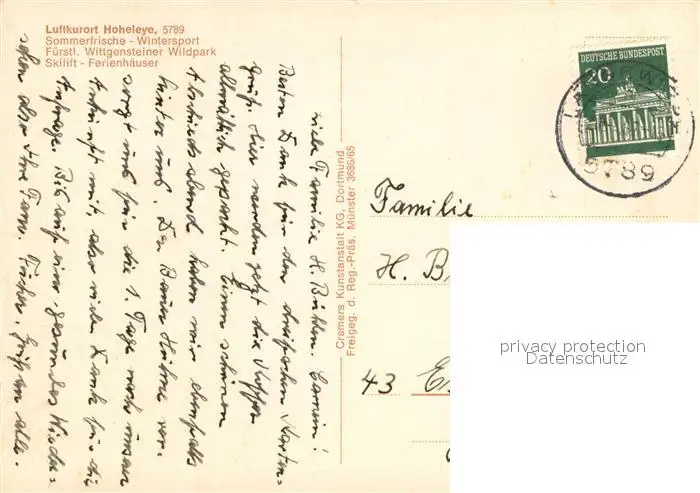 Luftkurort Hoheleye, 5789
Sommerfrische - Wintersport
Fürstl. Wittgensteiner Wildpark
Skilift - Ferienhäuser
Liebe Familie H. B Carmen!
Besten Dank für den dreifachen Karten=
gruß. Hier werden jetzt die Koffer
allmählich gepackt. Einen schönen
Abschiedsabend haben wir ebenfalls
hinter uns. Den Baum Hübner ver=
sorgt uns für die 1. Tage nach unser
Ankunft mit, aber vielen Dank für die
Anfrage. Bis auf ein gesundes Wieder=
sehen also Ihre Fam. Fischer, Grüß an alle.
Cramers Kunstanstalt KG, Dortmund
Freigeg. d. Reg.-Präs. Münster 3686/65
DEUTSCHE BUNDESPOST
20
5789
Familie
H. B
43 Es
privacy protection
Datenschutz